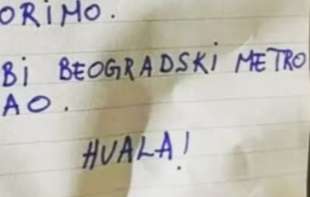 ORIMO.
BI BEOGRADSKI METRO
AO.
HVALA!